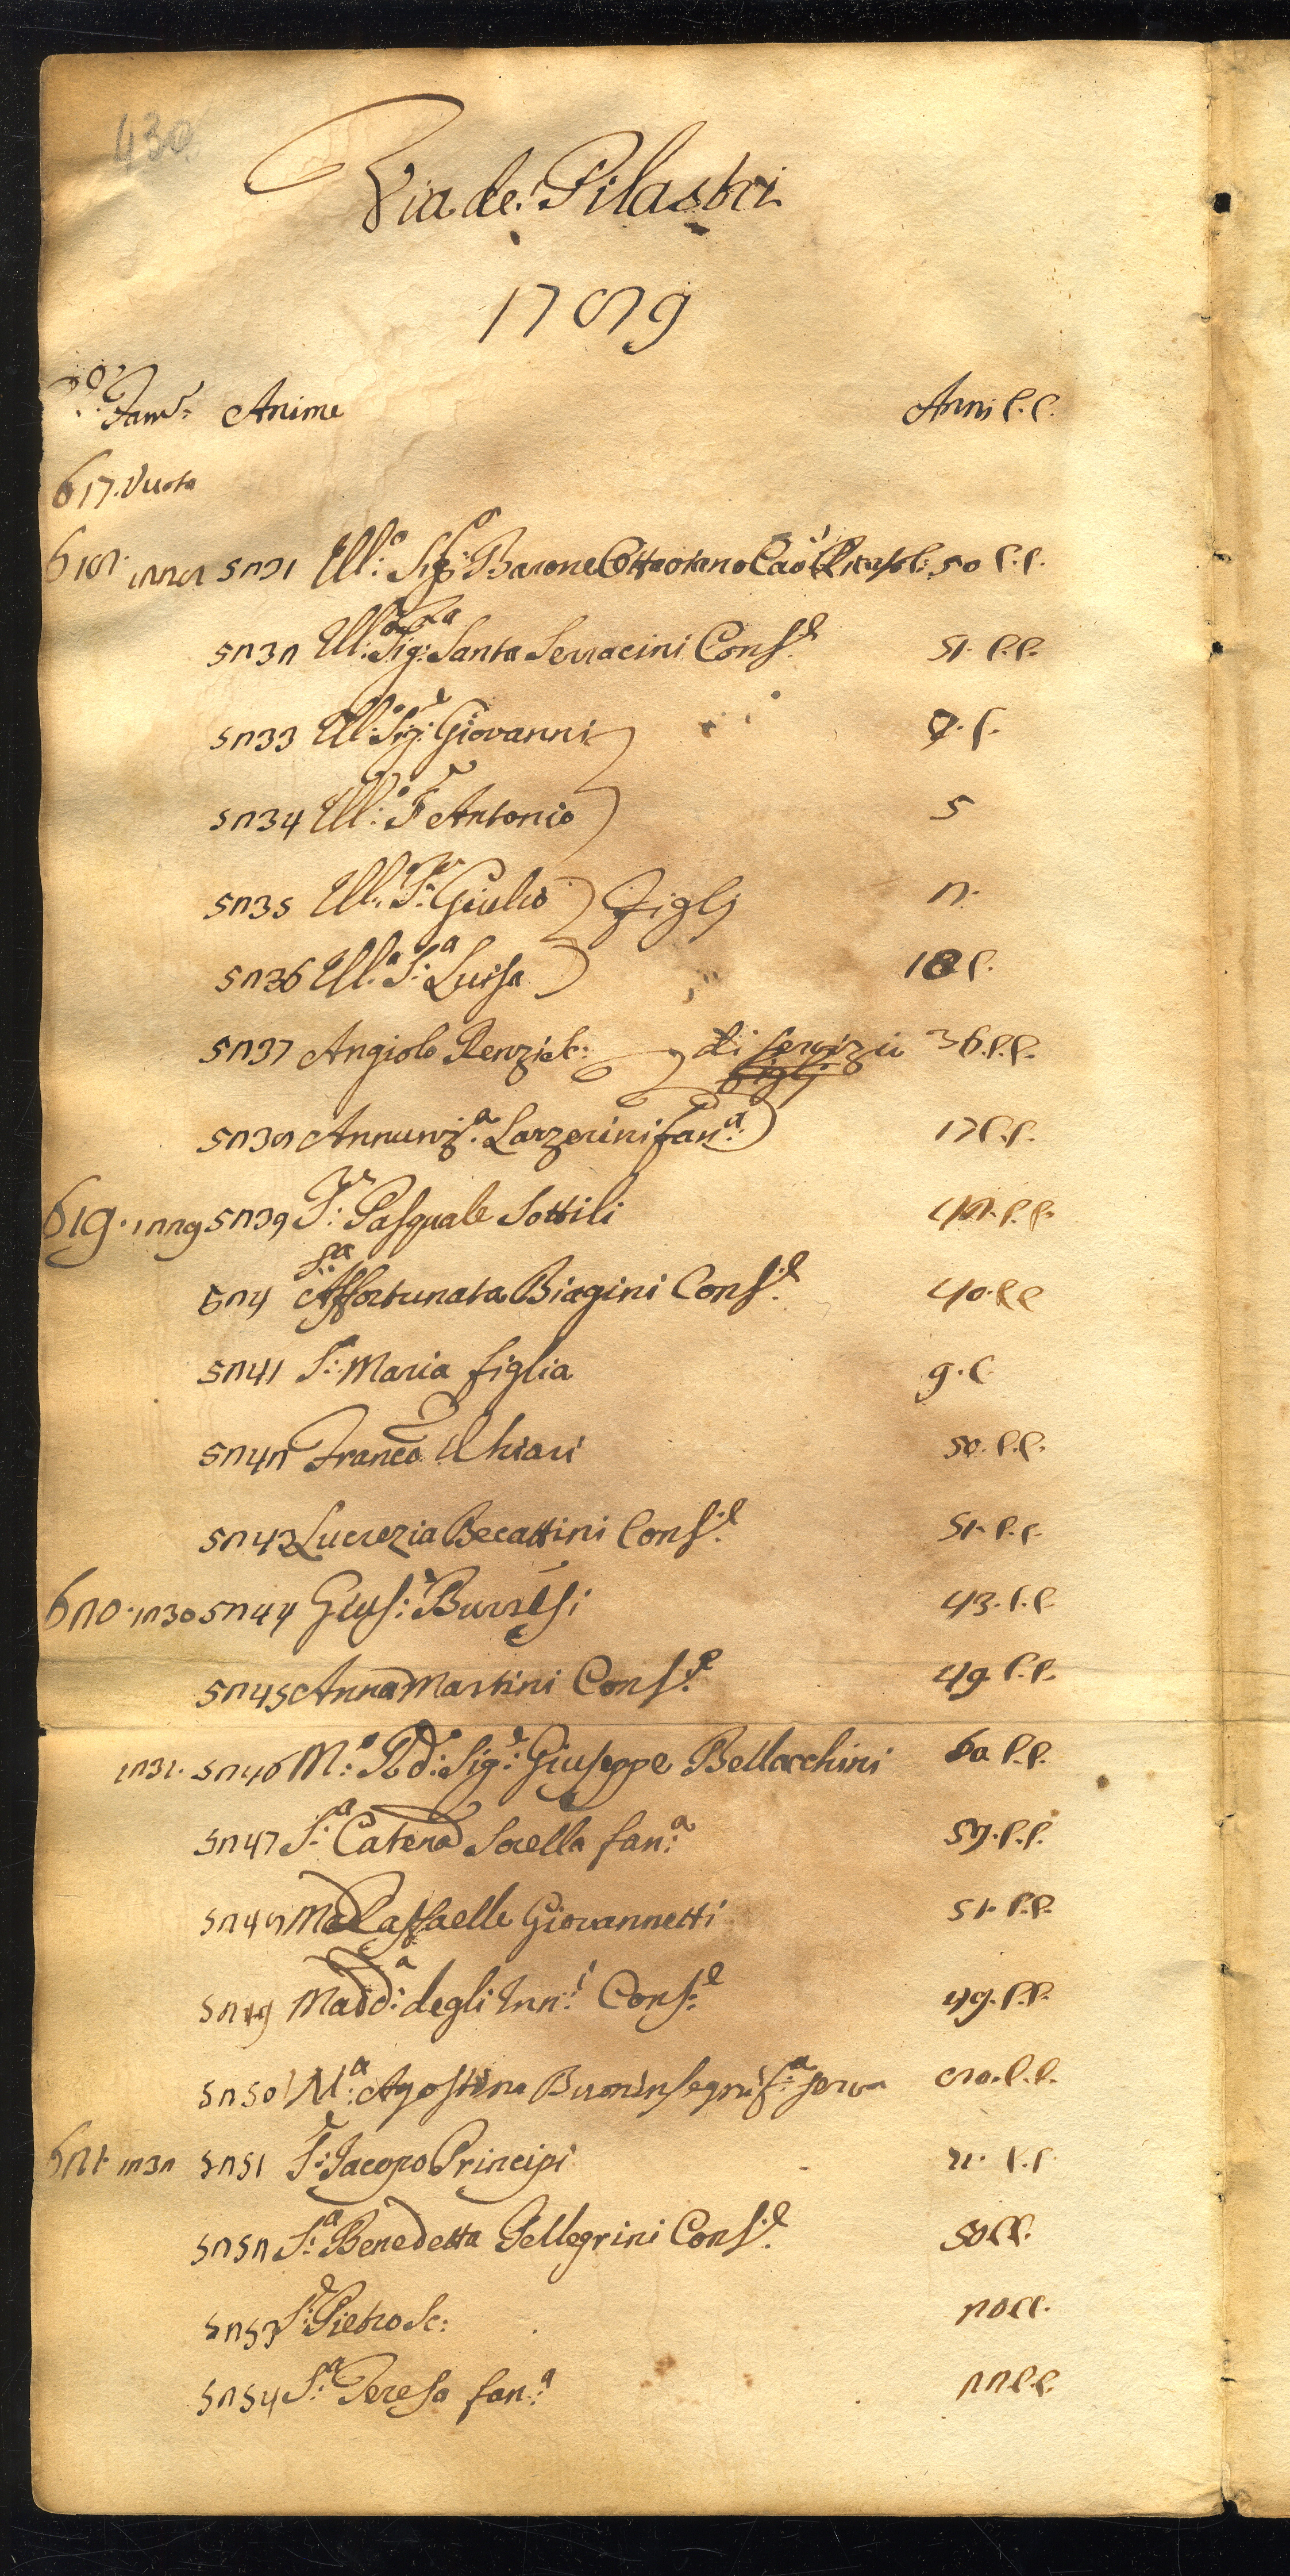 430
Via de Pilastri
1789
Fam. Anime Anni C.C.
617. Vuota
618. 1228 5231 Ill:o Sig:r Barone Cav:r 50 C.C.
5232 Ill:a Sig:a Santa Serracini Cons:e 51. C.C.
5233 Ill:o Sig:r Giovanni
5234 Ill:o S:r Antonio 5
5235 Ill:o S:r Giulio Figlj 2.
5236 Ill:a S:a Luisa C.
5237 Angiolo Renzi Sc: di servizio 36. C.C.
5238 Annunz:a Lazzerini fan:a 17 C.C.
619. 1229 5239 S:r Pasquale Sottili 48. C.C.
524 S:a Affortunata Biagini Cons:e 40. CC
5241 S:a Maria figlia 9. C.
5242 Franco Chiari 50. C.C.
5243 Lucrezia Becattini Cons:e 51. C.C.
620. 1230 5244 Gius:e Burresi 43. C.C.
5245 Anna Martini Cons:e 49 C.C.
1231. 5246 M:o Rd:o Sig:r Giuseppe Bellacchini 60 C.C.
5247 S:a Catera Sorella fan:a C.C.
5248 Raffaelle Giovannetti 51. C.C.
5249 Madd:a degli Inn:i Cons:e 49. C.C.
5250 M:a Agostina Buoninsegni f:a serva 80. C.C.
621. 1232 5251 S:r Jacopo Principi C.C.
5252 S:a Benedetta Pellegrini Cons:e CC.
5253 S:r Pietro Sc: 20 CC.
5254 S:a Teresa fan:a 22 C.C.